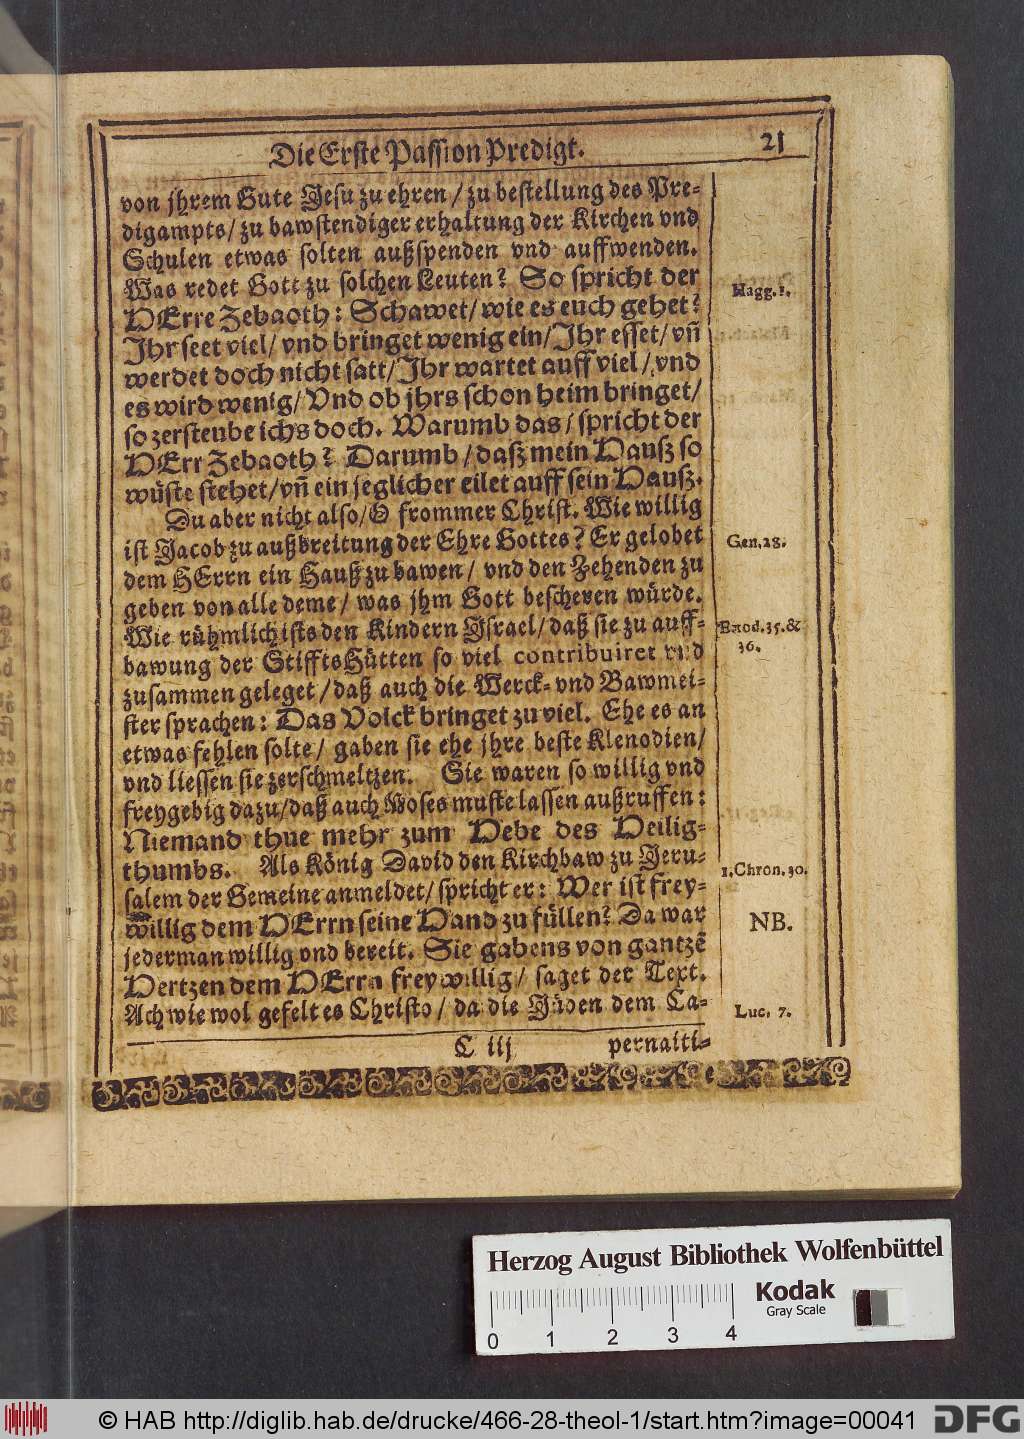 Die Erste Passion Predigt. 21
von jhrem Gute Jesu zu ehren / zu bestellung des Pre-
digampts / zu bawstendiger erhaltung der Kirchen vnd
Schulen etwas solten außspenden vnd auffwenden.
Was redet Gott zu solchen Leuten? So spricht der
HErre Zebaoth: Schawet / wie es euch gehet?
Hagg. 1.
Ihr seet viel / vnd bringet wenig ein / Ihr esset / vñ
werdet doch nicht satt / Ihr wartet auff viel / vnd
es wird wenig / Vnd ob jhrs schon heim bringet /
so zersteube ichs doch. Warumb das / spricht der
HErr Zebaoth? Darumb / daß mein Hauß so
wüste stehet / vñ ein jeglicher eilet auff sein Hauß.
Du aber nicht also / O frommer Christ. Wie willig
ist Jacob zu außbreitung der Ehre Gottes? Er gelobet
Gen. 28.
dem HErrn ein Hauß zu bawen / vnd den Zehenden zu
geben von alle deme / was jhm Gott bescheren würde.
Wie rühmlich ists den Kindern Israel / daß sie zu auff-
Exod. 35. &
36.
bawung der StifftsHütten so viel contribuiret vnd
zusammen geleget / daß auch die Werck- vnd Bawmei-
ster sprachen: Das Volck bringet zu viel. Ehe es an
etwas fehlen solte / gaben sie ehe jhre beste Klenodien /
vnd liessen sie zerschmeltzen. Sie waren so willig vnd
freygebig dazu / daß auch Moses muste lassen außruffen:
Niemand thue mehr zum Hebe des Heilig-
thumbs. Als König David den Kirchbaw zu Jeru-
1. Chron. 30.
salem der Gemeine anmeldet / spricht er: Wer ist frey-
willig dem HErrn seine Hand zu füllen? Da war
NB.
jederman willig vnd bereit. Sie gabens von gantzẽ
Hertzen dem HErrn freywillig / saget der Text.
Ach wie wol gefelt es Christo / da die Jüden dem Ca-
Luc. 7.
C iij pernaiti-
Herzog August Bibliothek Wolfenbüttel
Kodak
Gray Scale
0 1 2 3 4
© HAB http://diglib.hab.de/drucke/466-28-theol-1/start.htm?image=00041
DFG